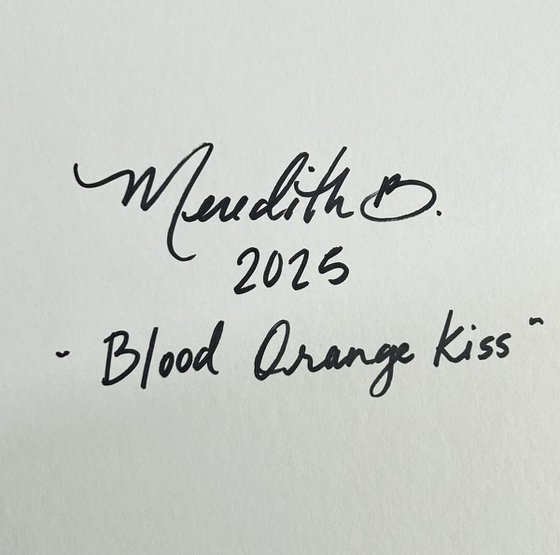 Meredith B.
2025
"Blood Orange Kiss"